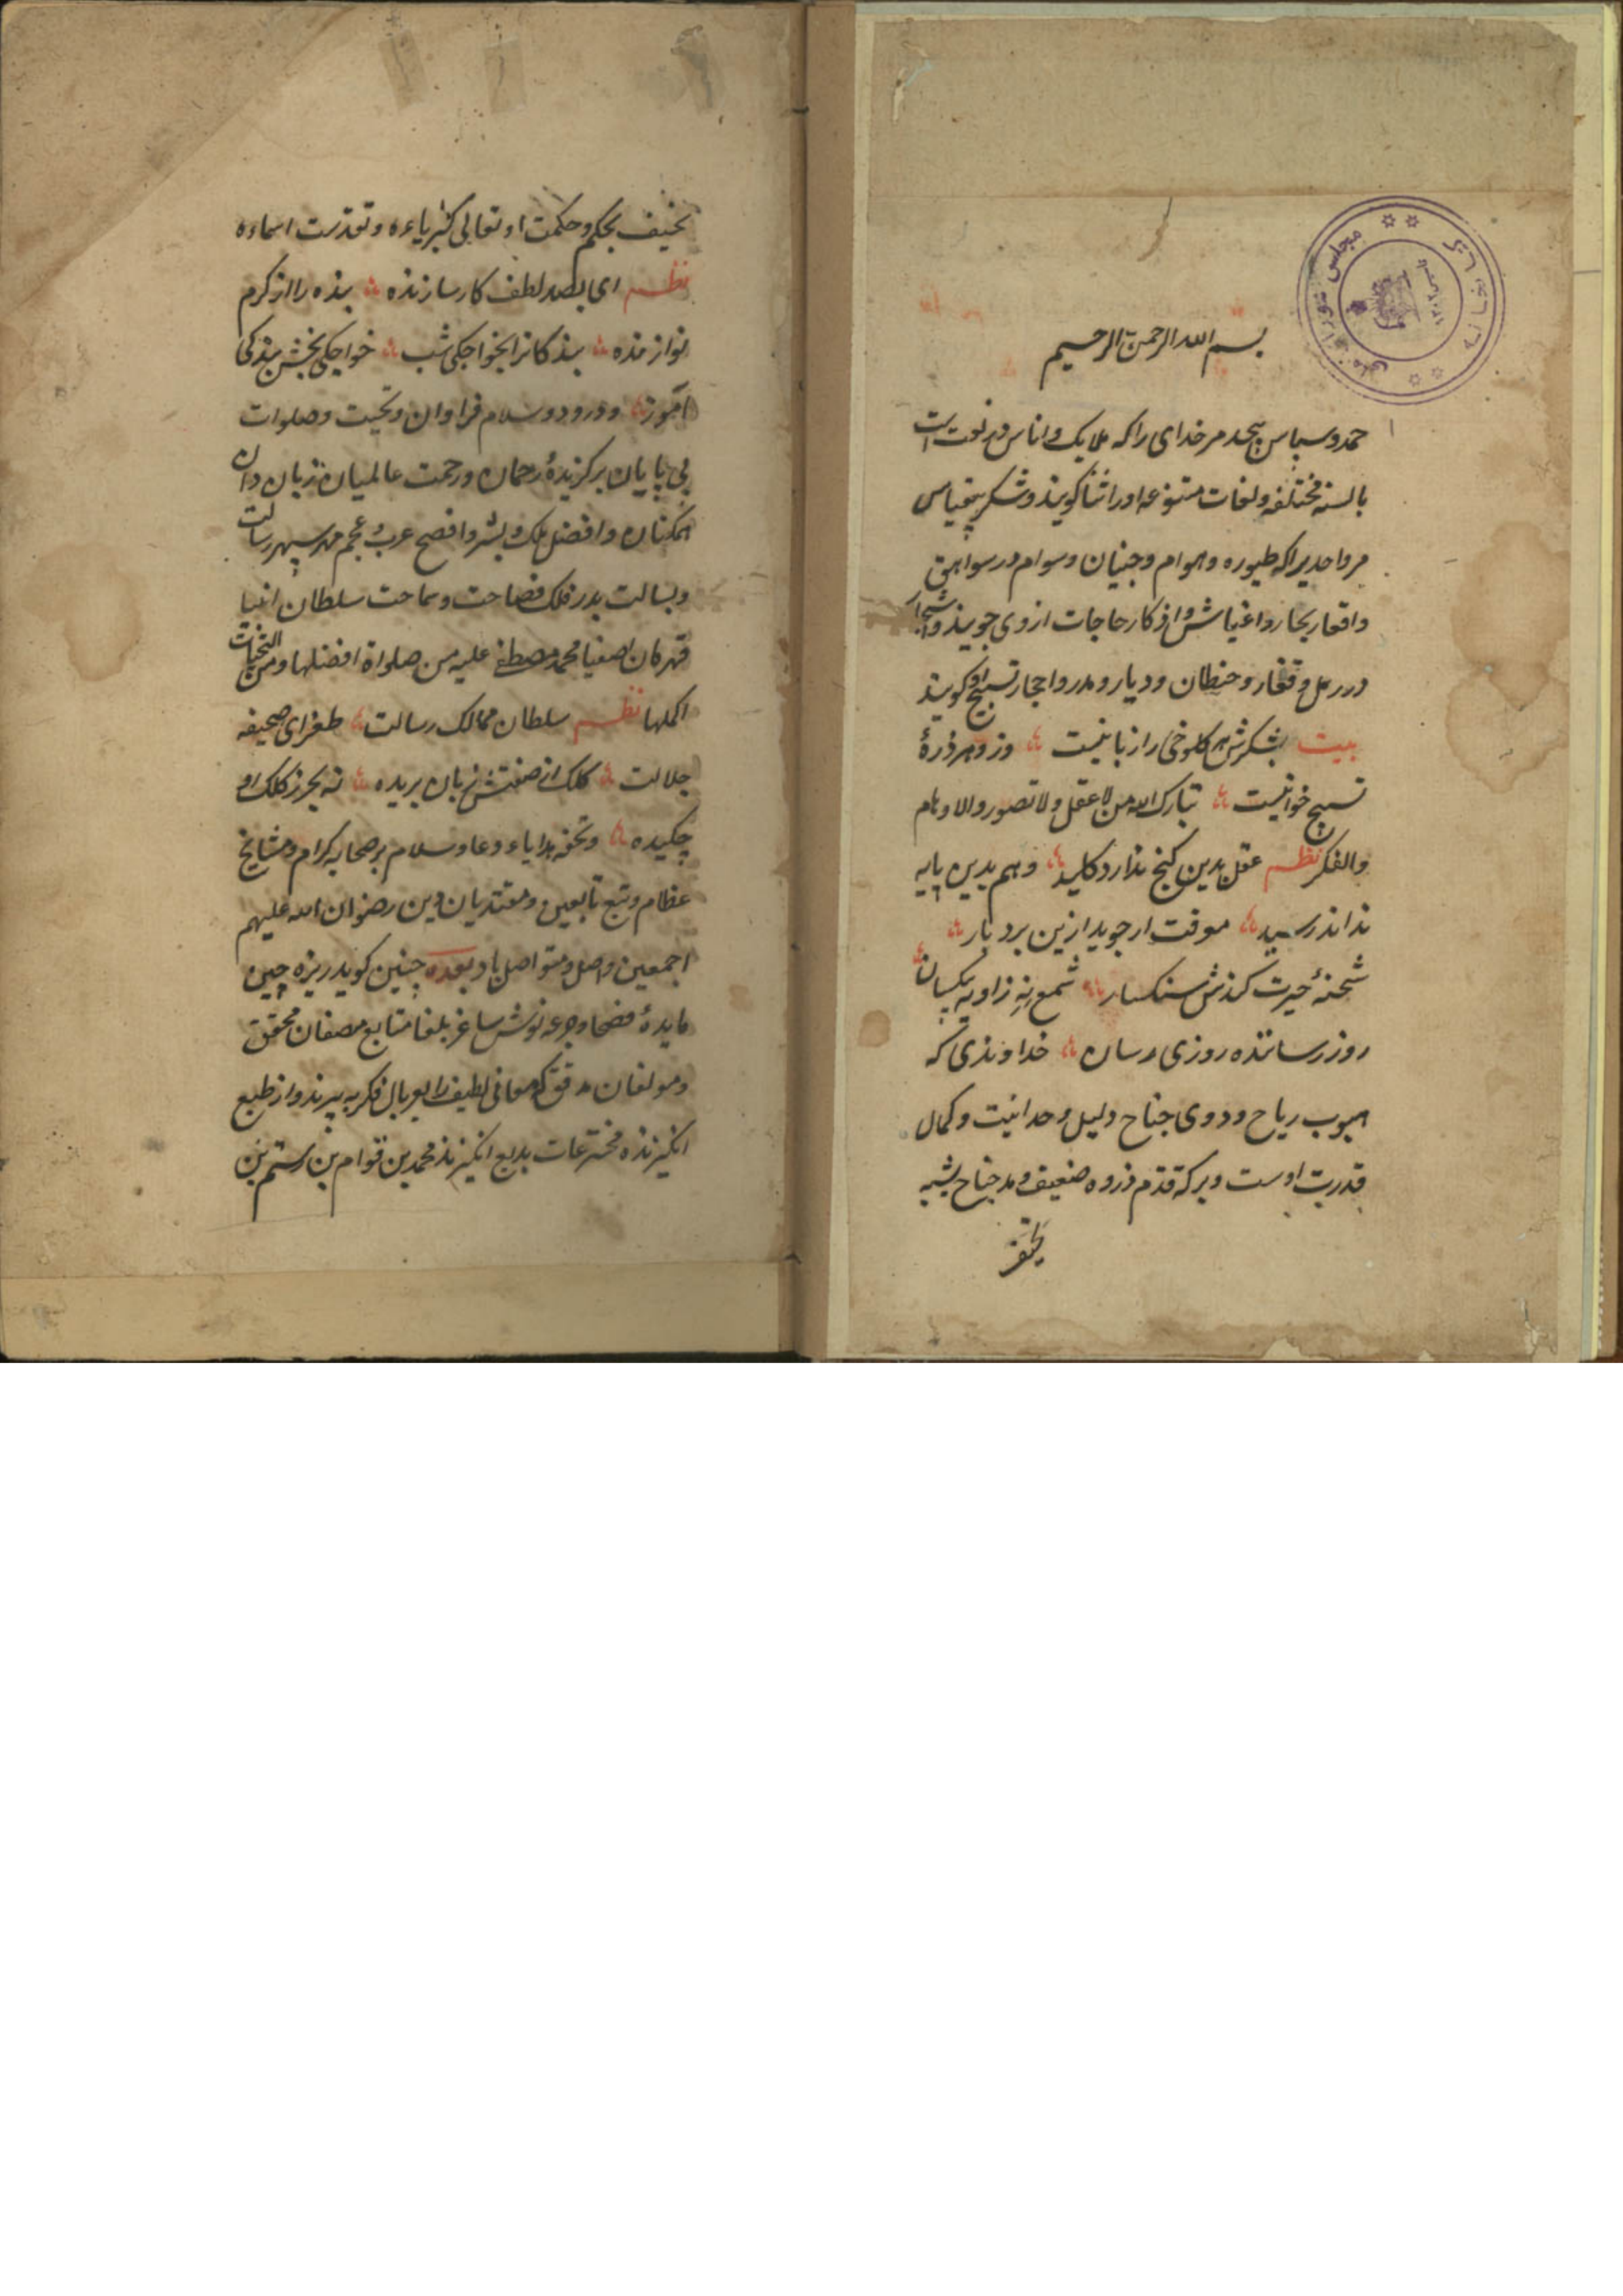 بسم الله الرحمن الرحیم
حمد و سپاس بیحد مر خدای را که ملایک و اناس در نوبت است
بالسنه مختلفه و لغات متنوعه اورا ثنا کویند و شکر بیقیاس
مر واحدیرا که طیوره و هوام و جنیان و سوام در سواهق
و اقعار بحار و اغیاش و اذکار حاجات از وی جویند و اشجار
در رمل و قفار و حیطان و دیار و مدر و احجار تسبیح او کویند
بیت بشکرش هر کلوخی را زبانیست وزو هر ذرهٔ
تسبیح خوانیست تبارک الله من لا عقل و لا تصور و الاوهام
والفکر نظم عقل بدین کنج ندارد کلید وهم بدین پایه
نداند رسید معرفت ار جوید ازین برد بار
شحنهٔ حیرت کندش سنکسار شمع نه زاویه یکسان
روز رساننده روزی رسان خداوندی که
هبوب ریاح و دوی جناح دلیل وحدانیت و کمال
قدرت اوست و برکه قدم ذروه ضعیف و مد جناح پشه
نحیف
نحیف بحکم و حکمت او تعالی کبریاءه و تقدست اسماءه
نظم ای بصد لطف کار سازنده بنده را از کرم
نوازنده بندکانرا بخواجکی شب خواجکی بخش بندکی
آموز و درود و سلام فراوان و تحیت و صلوات
بی پایان بر کزیدهٔ رحمان و رحمت عالمیان زبان دان
همکنان و افضل ملک و بشر و افصح عرب و عجم مهر سپهر رسالت
و بسالت بدر فلک فصاحت و سماحت سلطان انبیا
قهرمان اصفیا محمد مصطفی علیه من صلواة افضلها و من التحیات
اکملها نظم سلطان ممالک رسالت طغرای صحیفه
جلالت کلک از صفتش زبان بریده نه بحر ز کلک او
چکیده و تحفه هدایاء و دعا و سلام بر صحابه کرام و مشایخ
عظام و تبع تابعین و مقتدیان دین رضوان الله علیهم
اجمعین واصل و متواصل باد بعده چنین کوید ریزه چین
مایدهٔ فصحا و جرعه نوش ساغر بلغا متابع مصنفان محقق
و مولفان مدقق که معانی لطیف را بپر و بال فکر به پرند و از طبع
انکیزنده مخترعات بدیع انکیزند محمد بن قوام بن رستم بن